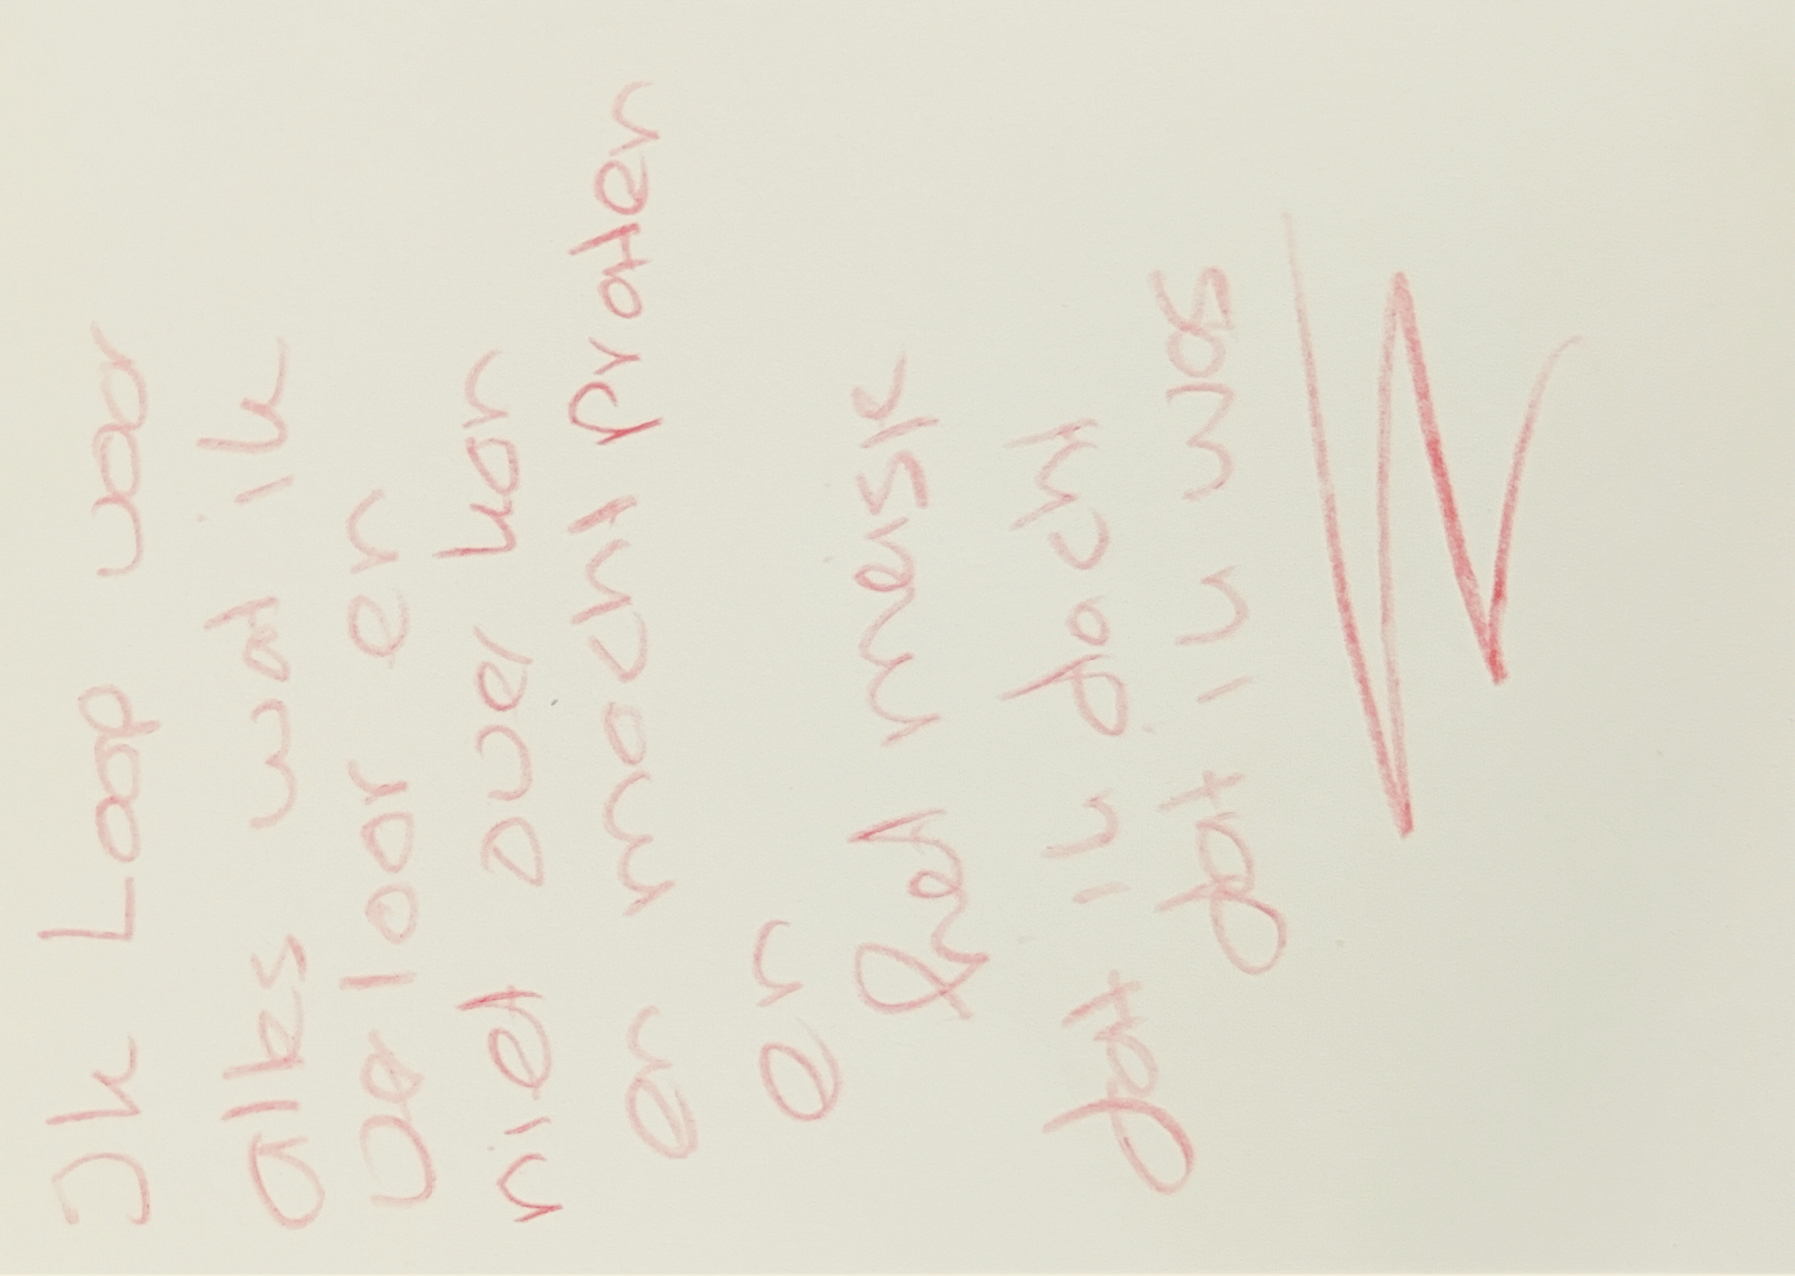 Ik Loop voor
alles wat ik
verloor en
niet over kon
en mocht praten
en
Het meisje
dat ik dacht
dat ik was